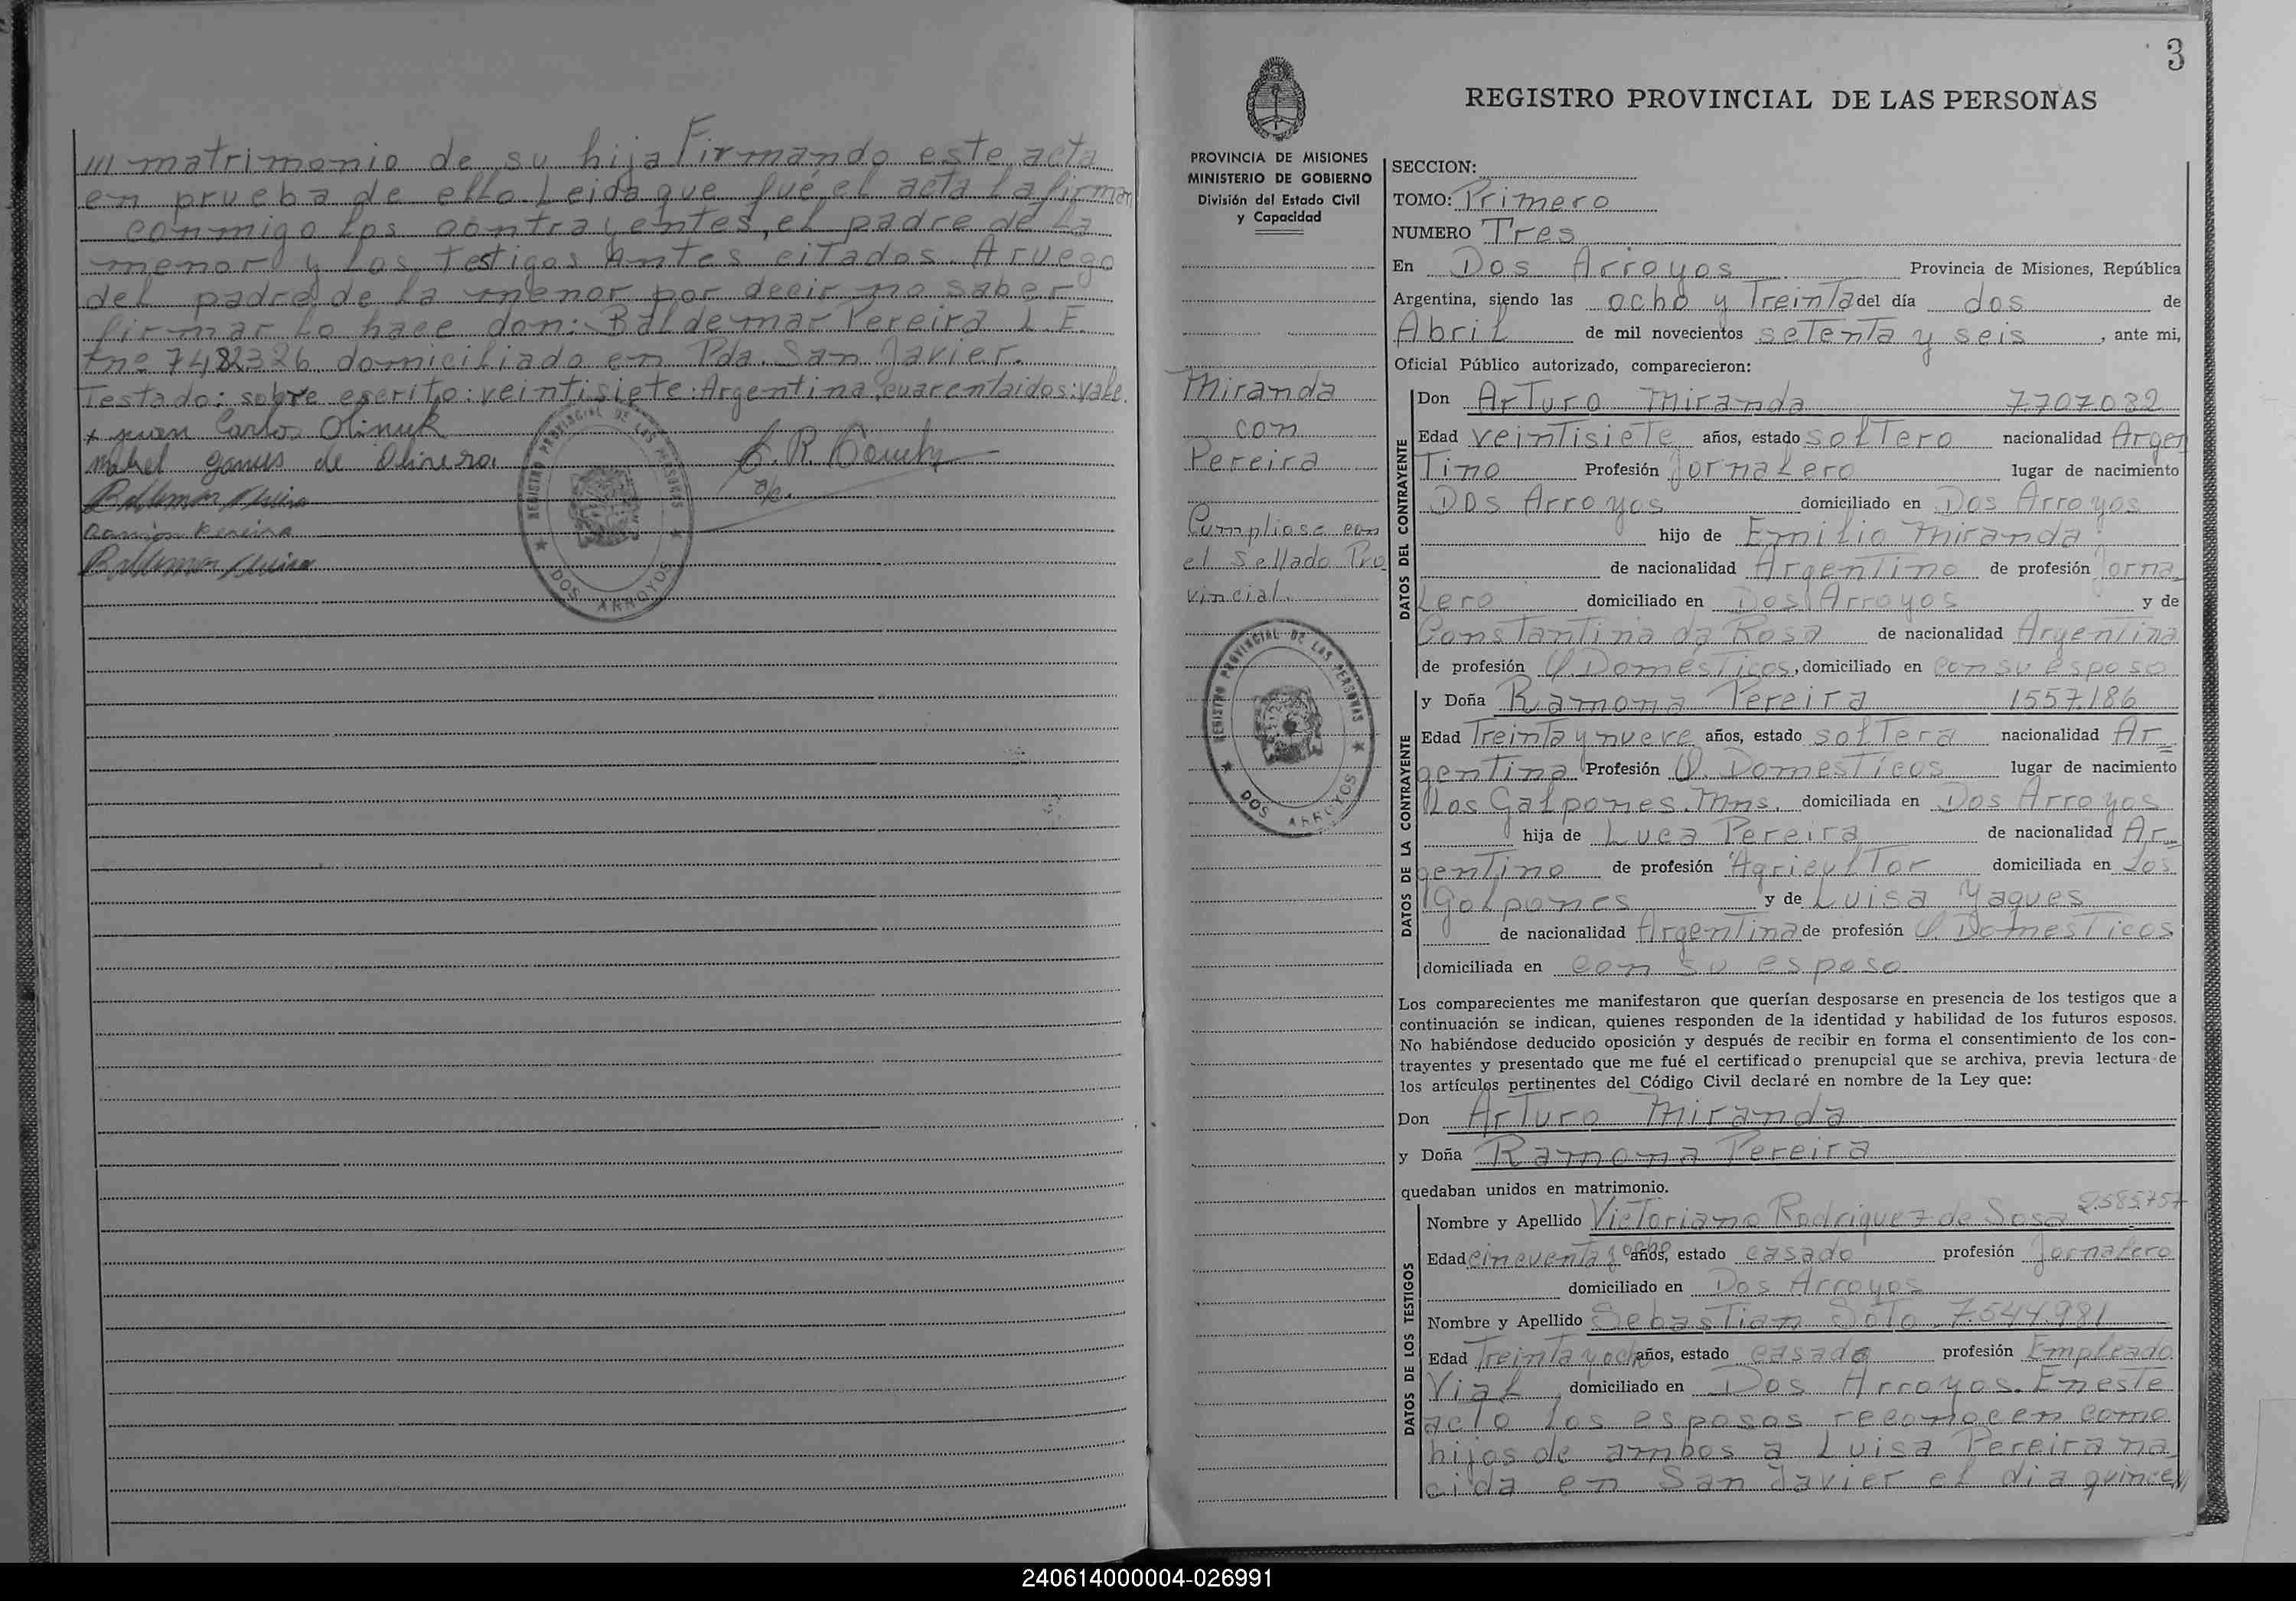 /// matrimonio de su hija Firmando este acta
en prueba de ello. Leida que fué el acta la firman
conmigo los contrayentes, el padre de la
menor y los testigos Antes citados. A ruego
del padre de la menor por decir no saber
firmar lo hace don: Baldemar Pereira L.E.
nº 7482326 domiciliado en Pda. San Javier.
Testado: sobre escrito: veintisiete: Argentina, cuarentaidos: vale.
x Juan Carlos Olinuk
Mabel de Olivera
Ramon Pereira
REGISTRO PROVINCIAL DE LAS PERSONAS
DOS ARROYOS
3
REGISTRO PROVINCIAL DE LAS PERSONAS
PROVINCIA DE MISIONES
MINISTERIO DE GOBIERNO
División del Estado Civil
y Capacidad
Miranda
con
Pereira
Cumpliose con
el Sellado Pro
vincial.
REGISTRO PROVINCIAL DE LAS PERSONAS
DOS ARROYOS
SECCION:
TOMO: Primero
NUMERO Tres
En Dos Arroyos Provincia de Misiones, República
Argentina, siendo las ocho y Treinta del día dos de
Abril de mil novecientos setenta y seis, ante mi,
Oficial Público autorizado, comparecieron:
DATOS DEL CONTRAYENTE
Don Arturo Miranda 7.707.032
Edad veintisiete años, estado soltero nacionalidad Argen
Tino Profesión Jornalero lugar de nacimiento
Dos Arroyos domiciliado en Dos Arroyos
hijo de Emilio Miranda
de nacionalidad Argentino de profesión Jorna
Lero domiciliado en Dos Arroyos y de
Constantina da Rosa de nacionalidad Argentina
de profesión Q. Domésticos, domiciliado en con su esposo
DATOS DE LA CONTRAYENTE
y Doña Ramona Pereira 1557.186
Edad Treinta y nueve años, estado soltera nacionalidad Ar=
gentina Profesión Q. Domesticos lugar de nacimiento
Los Galpones. Mns. domiciliada en Dos Arroyos
hija de Luca Pereira de nacionalidad Ar
gentino de profesión Agricultor domiciliada en Los
Galpones y de Luisa Yaques
de nacionalidad Argentina de profesión Q. Domesticos
domiciliada en con su esposo
Los comparecientes me manifestaron que querían desposarse en presencia de los testigos que a
continuación se indican, quienes responden de la identidad y habilidad de los futuros esposos.
No habiéndose deducido oposición y después de recibir en forma el consentimiento de los con-
trayentes y presentado que me fué el certificado prenupcial que se archiva, previa lectura de
los artículos pertinentes del Código Civil declaré en nombre de la Ley que:
Don Arturo Miranda
y Doña Ramona Pereira
quedaban unidos en matrimonio.
DATOS DE LOS TESTIGOS
Nombre y Apellido Victoriano Rodriguez de Sosa 2.585.757
Edad cincuenta y ocho años, estado casado profesión Jornalero
domiciliado en Dos Arroyos
Nombre y Apellido Sebastian Soto 7.544.981
Edad Treinta y ocho años, estado casado profesión Empleado
Vial domiciliado en Dos Arroyos. En este
acto los esposos reconocen como
hijos de ambos a Luisa Pereira na
cida en San Javier el dia quince //
240614000004-026991